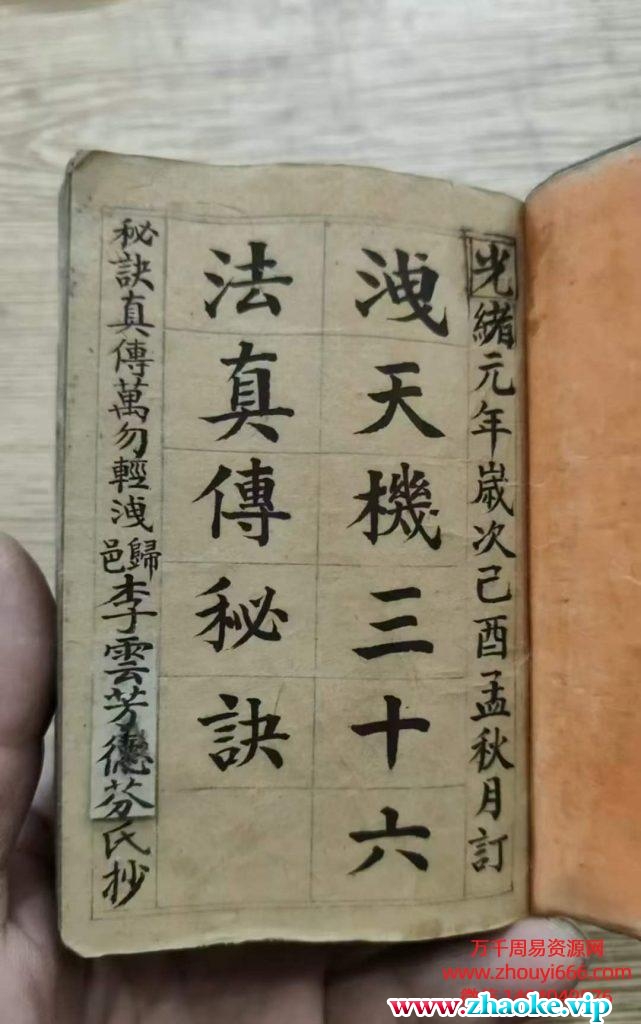 光緒元年歲次己酉孟秋月訂
洩天機三十六
法真傳秘訣
秘訣真傳萬勿輕洩歸邑李雲芳德芬氏抄
万千周易资源网
www.zhouyi666.com
www.zhaoke.vip